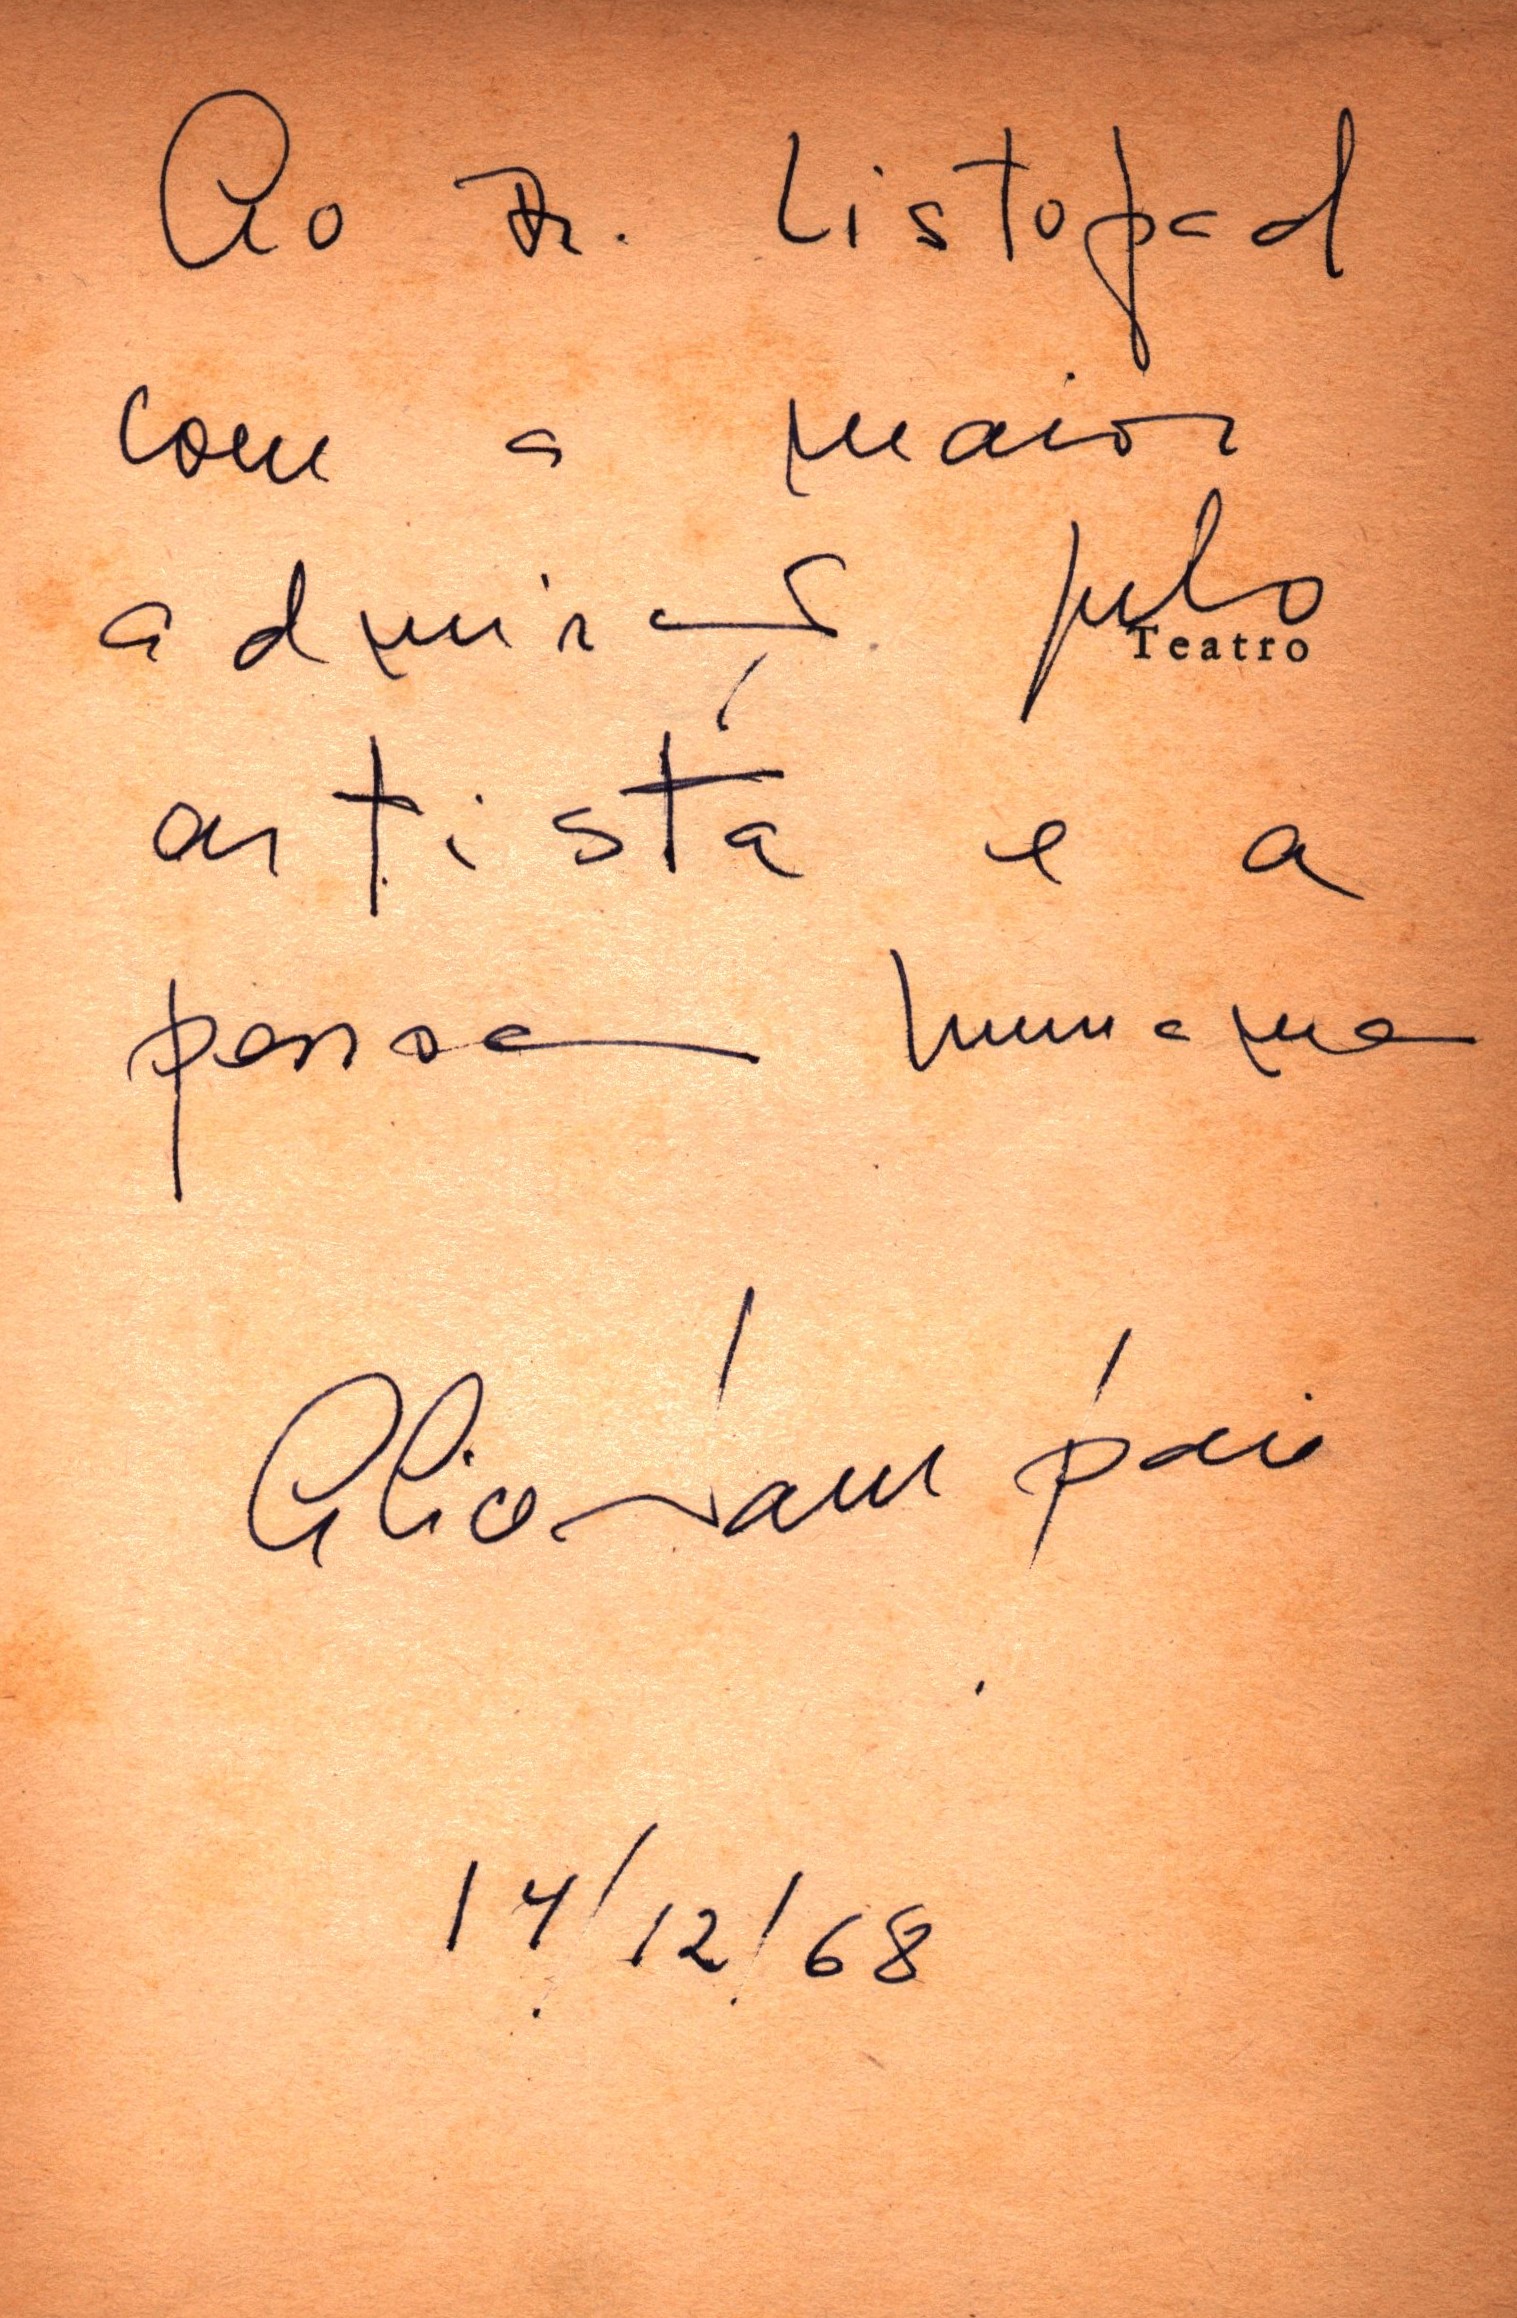 Ao Dr. Listopad
com a maior
admiração pelo
Teatro
artista e a
pessoa humana
14/12/68